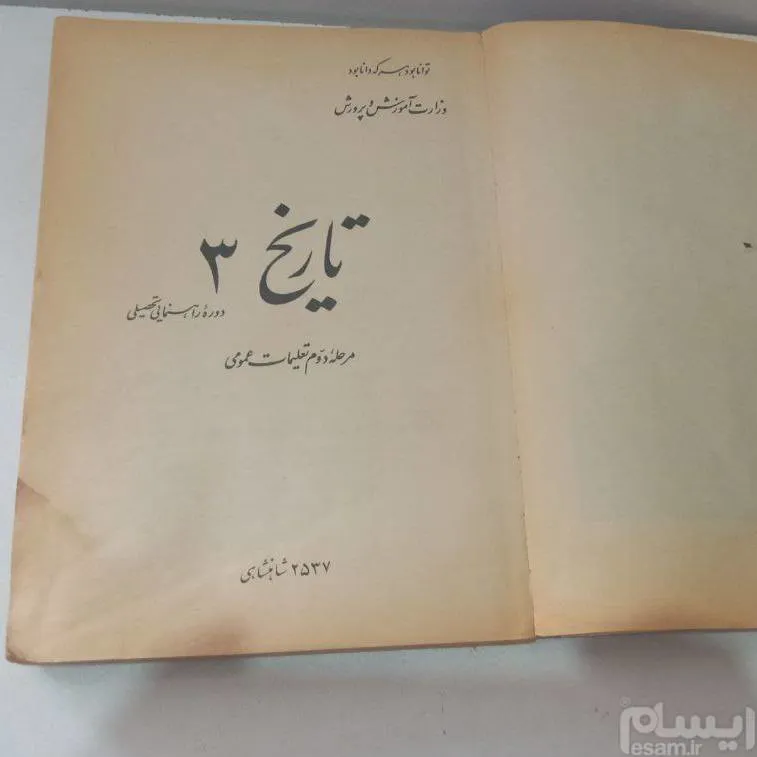 توانا بود هر که دانا بود
وزارت آموزش و پرورش
تاریخ ۳
دورهٔ راهنمایی تحصیلی
مرحلهٔ دوم تعلیمات عمومی
۲۵۳۷ شاهنشاهی
ایسام
esam.ir